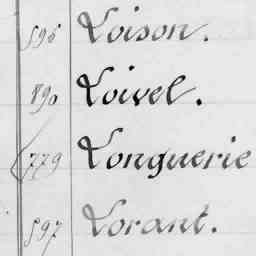 595 Loison.
890 Loivel.
779 Longuerie
597 Lorant.